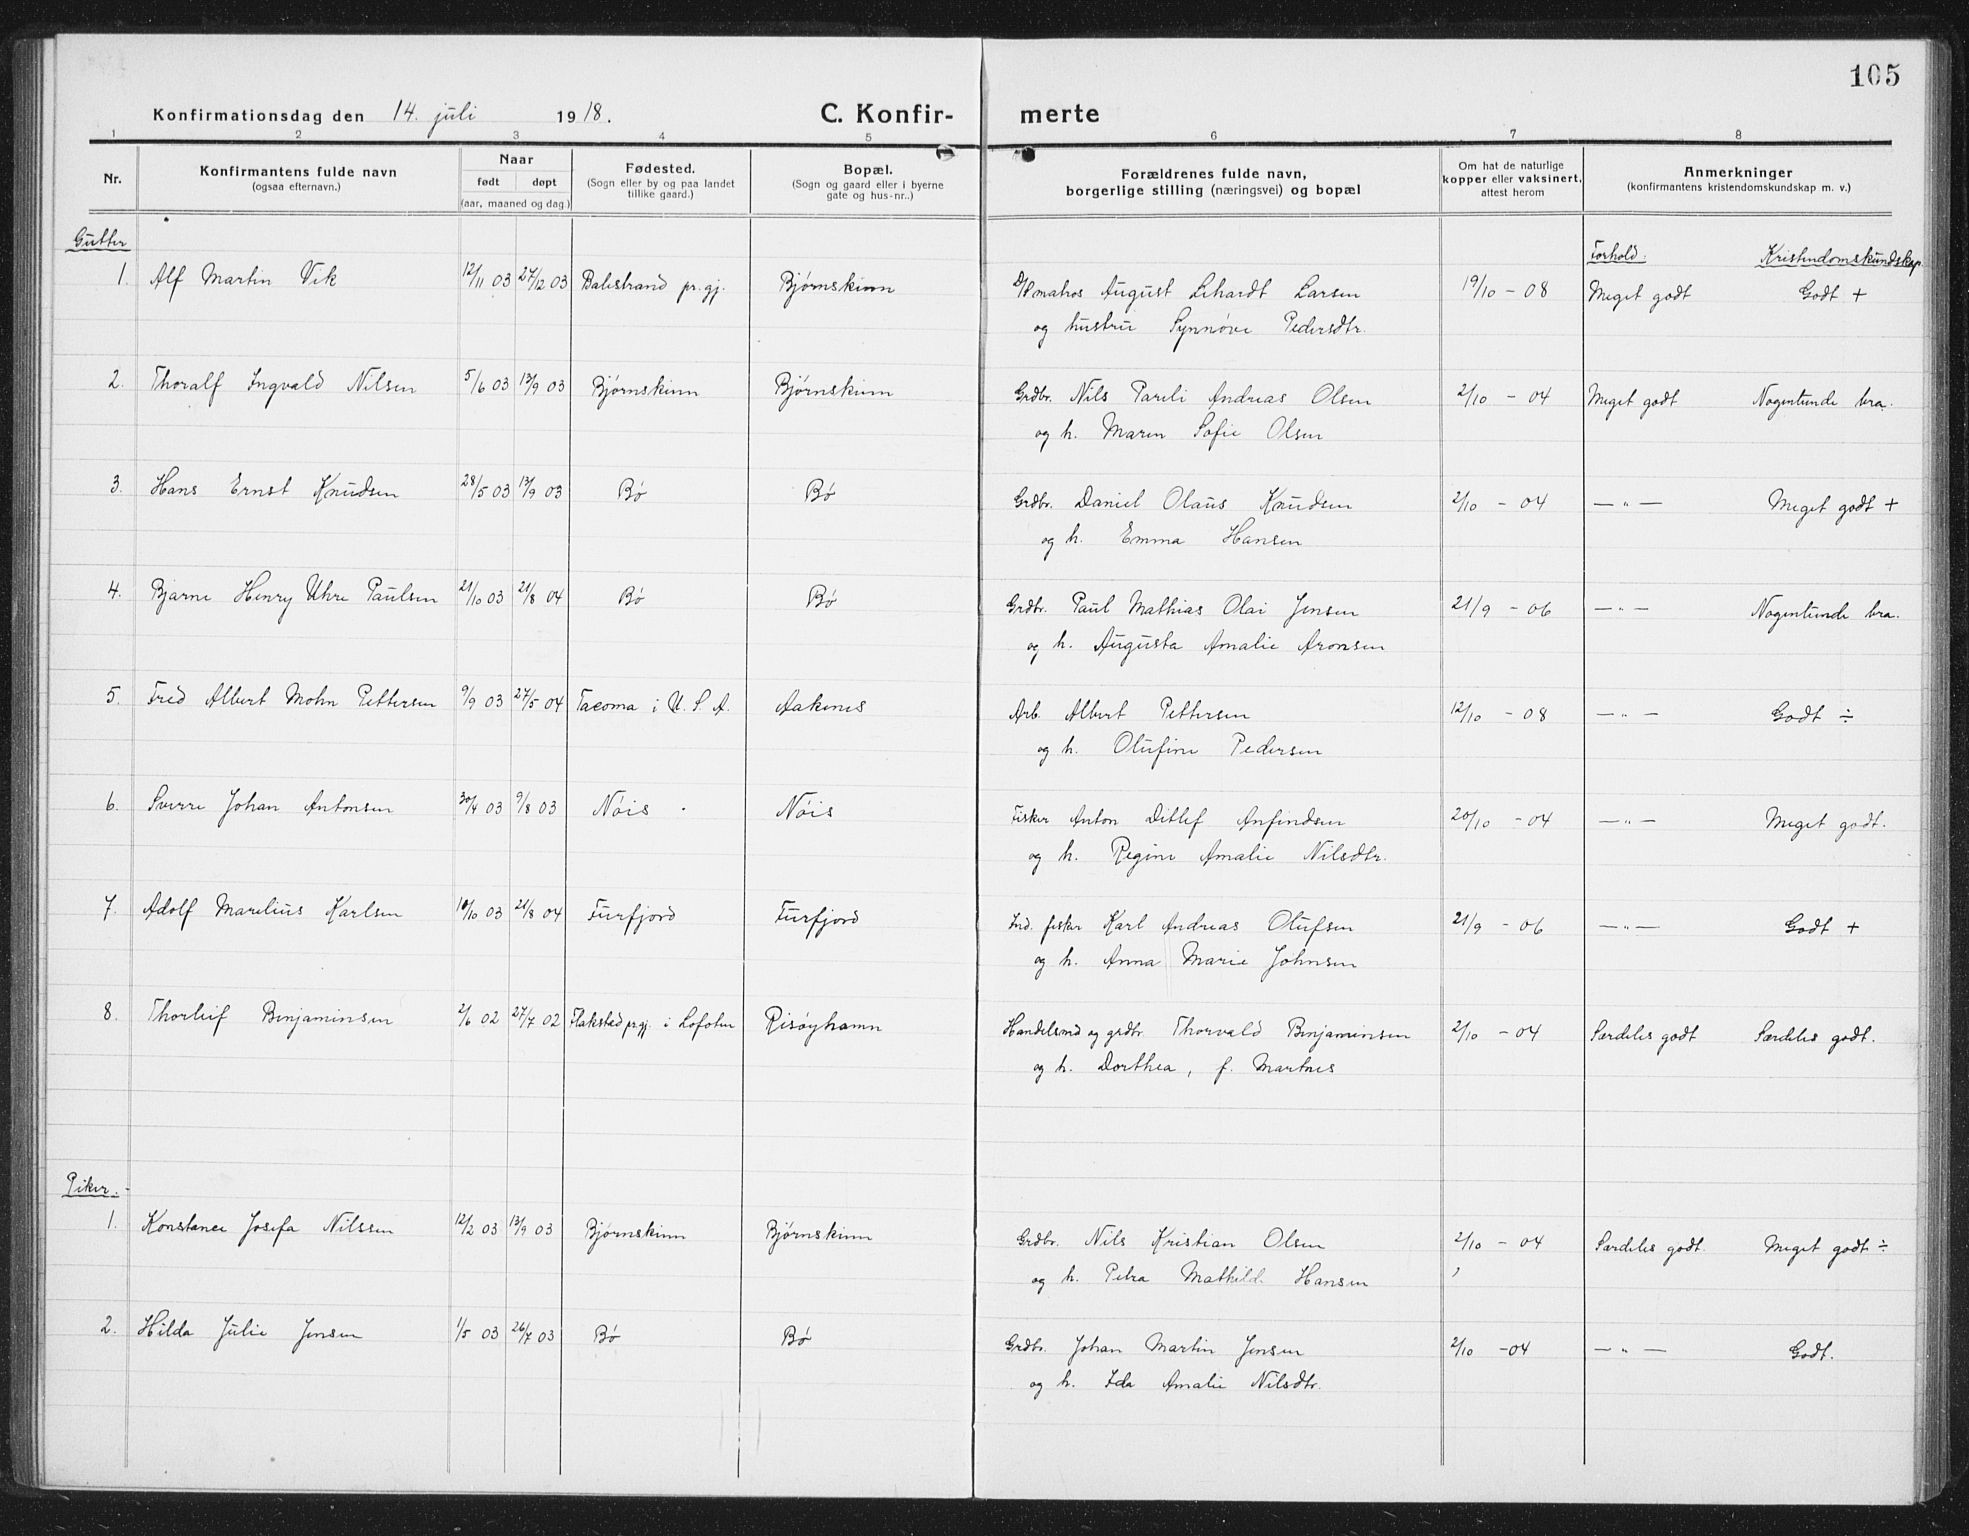 105
Konfirmationsdag den 14. juli 1918.
C. Konfirmerte
1 2 3 4 5 6 7 8
Nr.
Konfirmantens fulde navn
(ogsaa efternavn.)
Naar
født døpt
(aar, maaned og dag.)
Fødested.
(Sogn eller by og paa landet
tillike gaard.)
Bopæl.
(Sogn og gaard eller i byerne
gate og hus-nr..)
Forældrenes fulde navn,
borgerlige stilling (næringsvei) og bopæl
Om hat de naturlige
kopper eller vaksinert,
attest herom
Anmerkninger
(konfirmantens kristendomskundskap m. v.)
Gutter
Forhold: Kristendomskundskap.
1. Alf Martin Vik 12/11 03 27/12 03 Balestrand pr.gj. Bjørnskinn matros August Lehardt Larsen 19/10 - 08 Meget godt Godt +
og hustru Synnøve Pedersdtr.
2. Thoralf Ingvald Nilsen 5/6 03 13/9 03 Bjørnskinn Bjørnskinn Grdbr. Nils Pareli Andreas Olsen 2/10 - 04 Meget godt Nogenlunde bra.
og h. Maren Sofie Olsen
3. Hans Ernst Knudsen 28/5 03 13/9 03 Bø Bø Grdbr. Daniel Olaus Knudsen 2/10 - 04 — " — Meget godt +
og h. Emma Hansen
4. Bjarne Henry Uhre Paulsen 21/10 03 21/8 04 Bø Bø Grdbr. Paul Mathias Olai Jensen 21/9 - 06 — " — Nogenlunde bra.
og h. Augusta Amalie Aronsen
5. Fred Albert Mohn Pettersen 9/9 03 27/5 04 Tacoma i U. S. A. Aakenes Arb. Albert Pettersen 12/10 - 08 — " — Godt ÷
og h. Olufine Pedersen
6. Sverre Johan Antonsen 30/4 03 9/8 03 Nøis Nøis Fisker Anton Ditlef Anfindsen 20/10 - 04 — " — Meget godt.
og h. Regine Amalie Nilsdtr.
7. Adolf Marelius Karlsen 10/10 03 21/8 04 Furfjord Furfjord Ind. fisker Karl Andreas Olufsen 21/9 - 06 — " — Godt +
og h. Anna Marie Johnsen
8. Thorleif Benjaminsen 2/6 02 27/7 02 Flakstad prgj. i Lofoten Risøyhamn Handelsmd og grdbr. Thorvald Benjaminsen 2/10 - 04 Særdeles godt Særdeles godt.
og h. Dorthea, f. Martnes
Piker.
1. Konstance Josefa Nilssen 12/2 03 13/9 03 Bjørnskinn Bjørnskinn Grdbr. Nils Kristian Olsen 2/10 - 04 Særdeles godt. Meget godt ÷
og h. Petra Mathilde Hansen
2. Hilda Julie Jensen 1/5 03 26/7 03 Bø Bø Grdbr. Johan Martin Jensen 2/10 - 04 — " — Godt.
og h. Ida Amalie Nilsdtr.